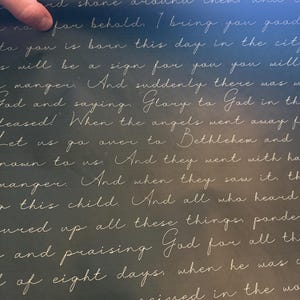 rd shone around them and
for behold, I bring you good
to you is born this day in the cit
s will be a sign for you you will
manger. And suddenly there was
God and saying, Glory to God in th
leased! When the angels went away f
Let us go over to Bethlehem and
nown to us. And they went with ha
manger. And when they saw it, th
g this child. And all who heard
ured up all these things, ponde
and praising God for all th
of eight days, when he was c
ceived in the wo